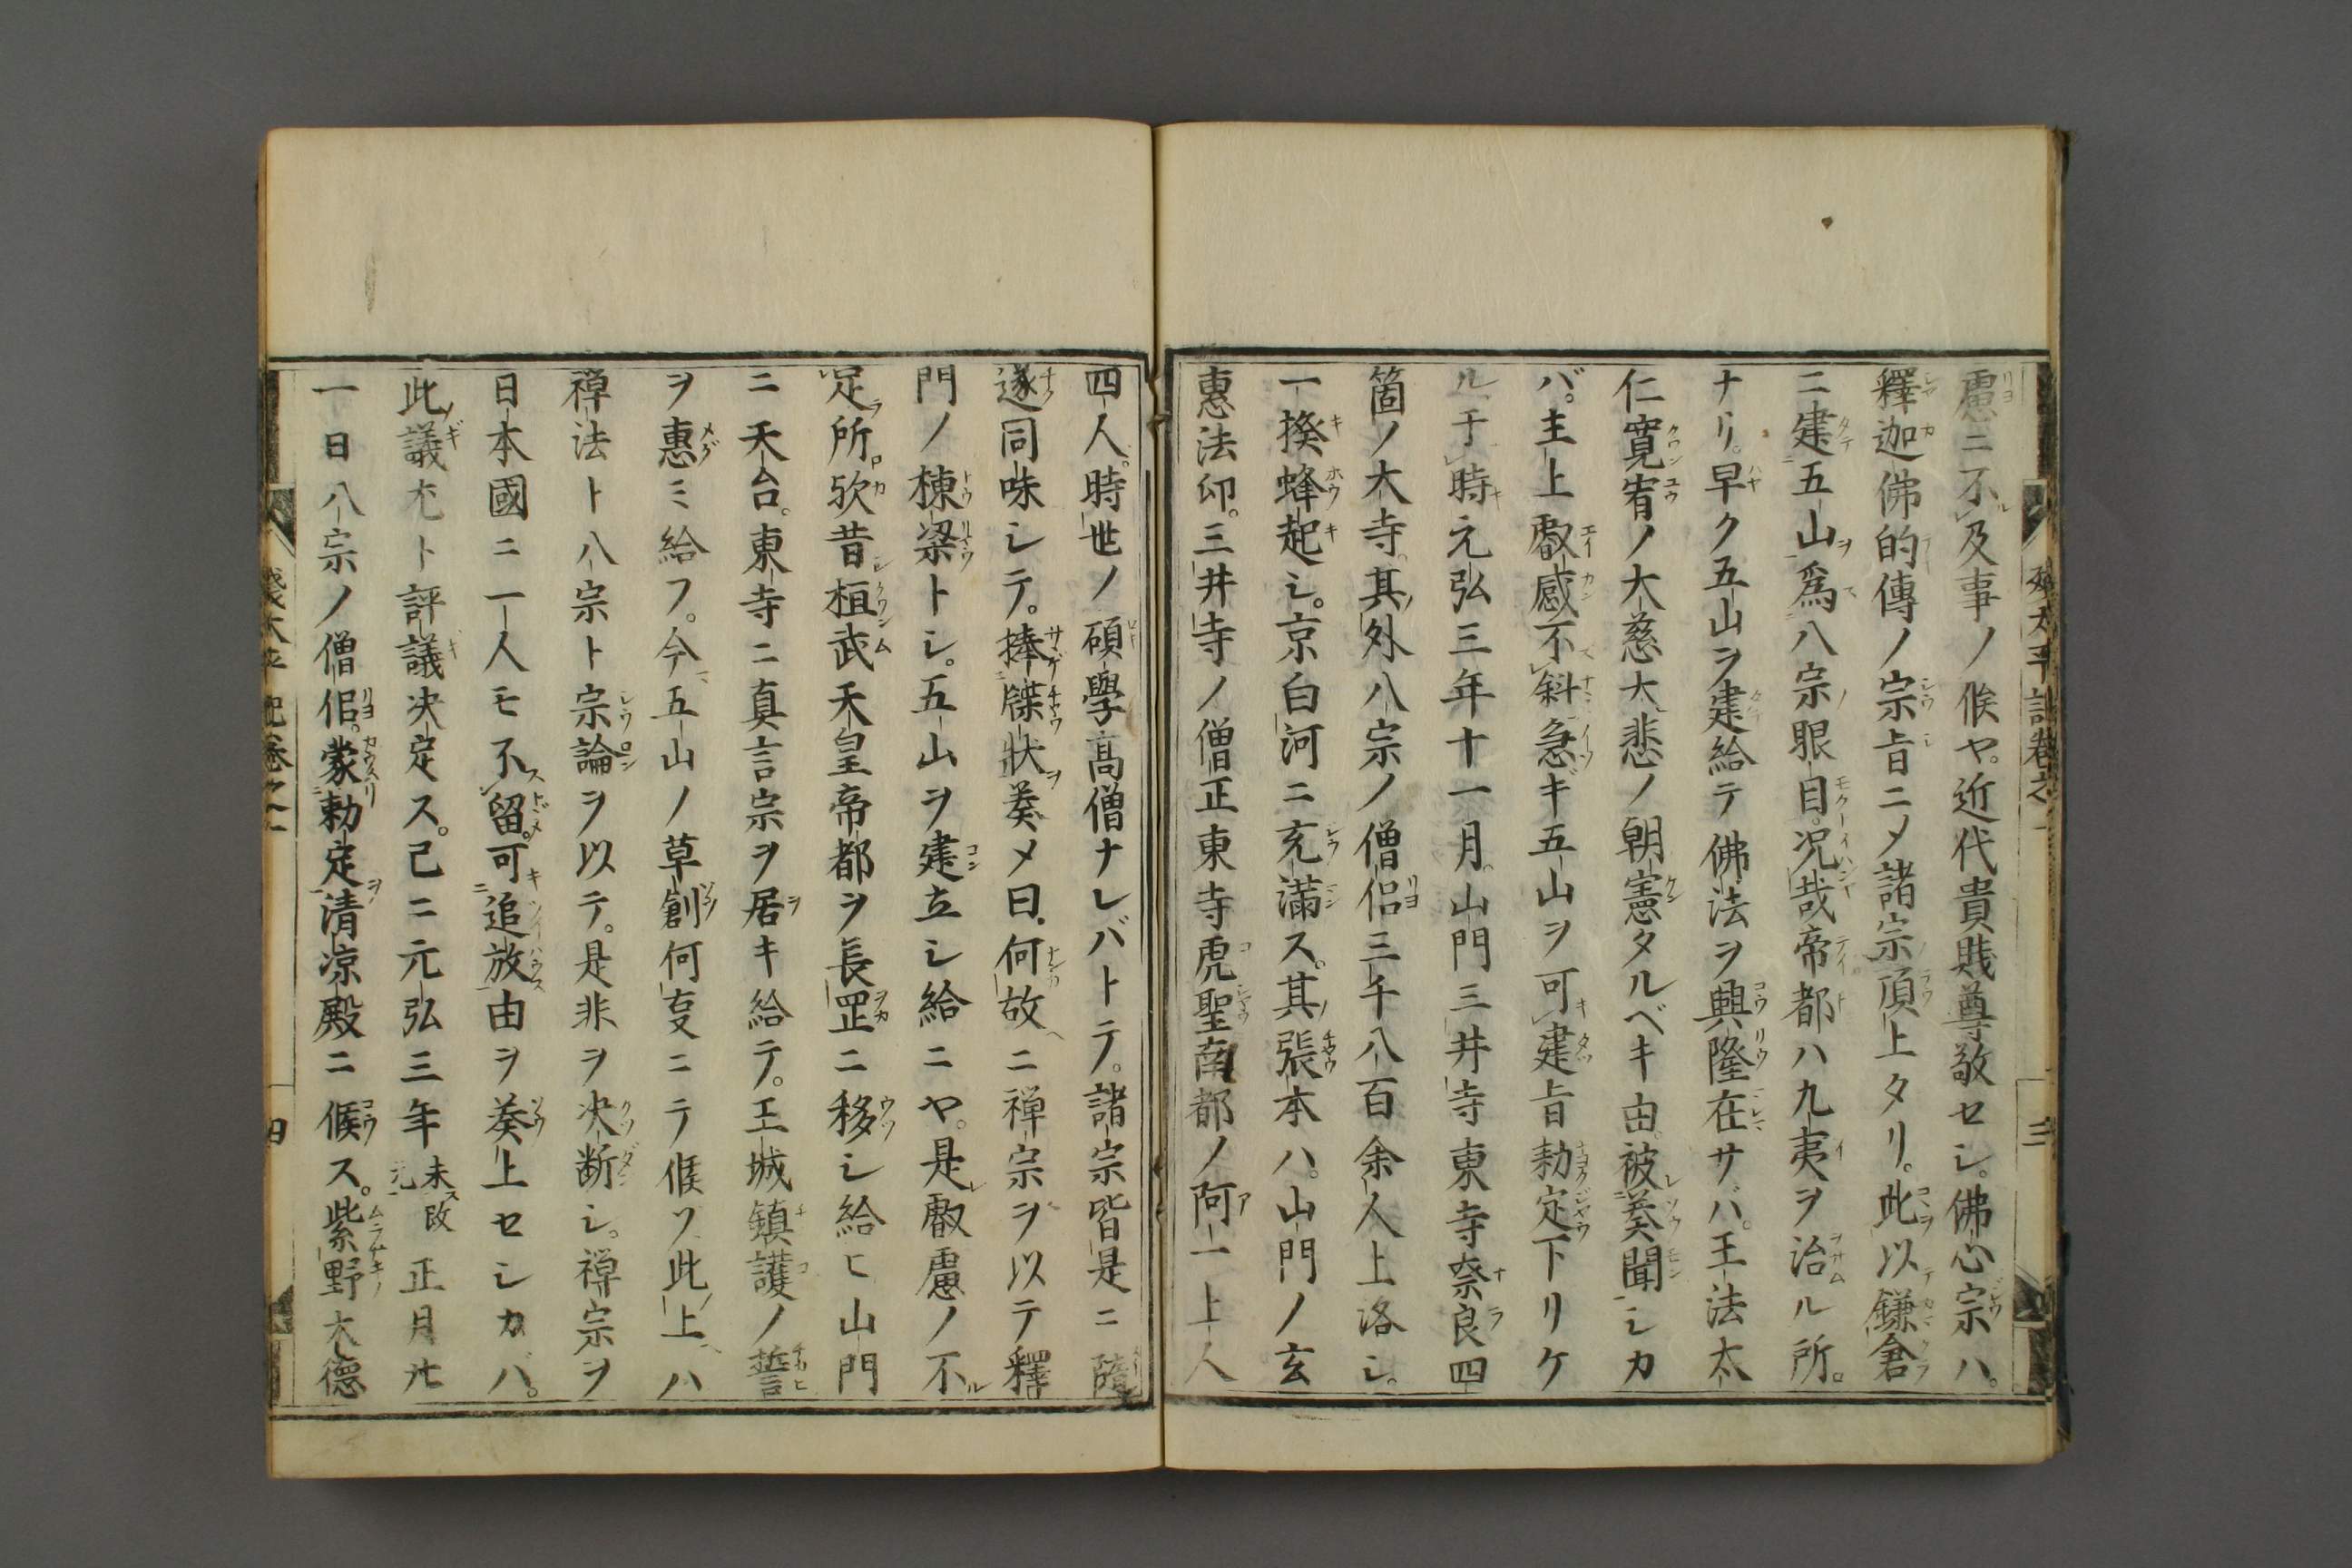 慮ニ不及事ノ候ヤ。近代貴賎尊敬セシ。佛心宗ハ。
釋迦佛的傳ノ宗旨ニメ諸宗頂上タリ。此以鎌倉
ニ建五山為八宗眼目。況哉帝都ハ九夷ヲ治ル所。
ナリ。早ク五山ヲ建給テ佛法ヲ興隆在サバ。王法太
仁寛宥ノ大慈大悲ノ朝憲タルベキ由。被奏聞シカ
バ。主上叡感不斜急ギ五山ヲ可建旨勅定下リケ
ル于時元弘三年十一月。山門三井寺東寺奈良四
箇ノ大寺。其外八宗ノ僧侶三千八百余人上洛シ。
一揆蜂起シ。京白河ニ充満ス。其張本ハ。山門ノ玄
惠法印。三井寺ノ僧正東寺虎聖南都ノ阿一上人
四人。時世ノ碩學髙僧ナレバトテ。諸宗皆是ニ隨
遂同味シテ。捧牒狀奏メ曰。何故ニ禅宗ヲ以テ釋
門ノ棟梁トシ。五山ヲ建立シ給ニヤ。是叡慮ノ不
足所欤昔桓武天皇帝都ヲ長罡ニ移シ給ヒ山門
ニ天台。東寺ニ真言宗ヲ居キ給テ。王城鎮護ノ誓
ヲ惠ミ給フ。今五山ノ草創何叓ニテ候ソ此上ハ
禅法ト八宗ト宗論ヲ以テ。是非ヲ决断シ。禅宗ヲ
日本國ニ一人モ不留。可追放由ヲ奏上セシカバ。
此議尤ト評議决定ス。己ニ元弘三年未改元正月廿
一日八宗ノ僧侶。蒙勅定清凉殿ニ候ス。紫野大德